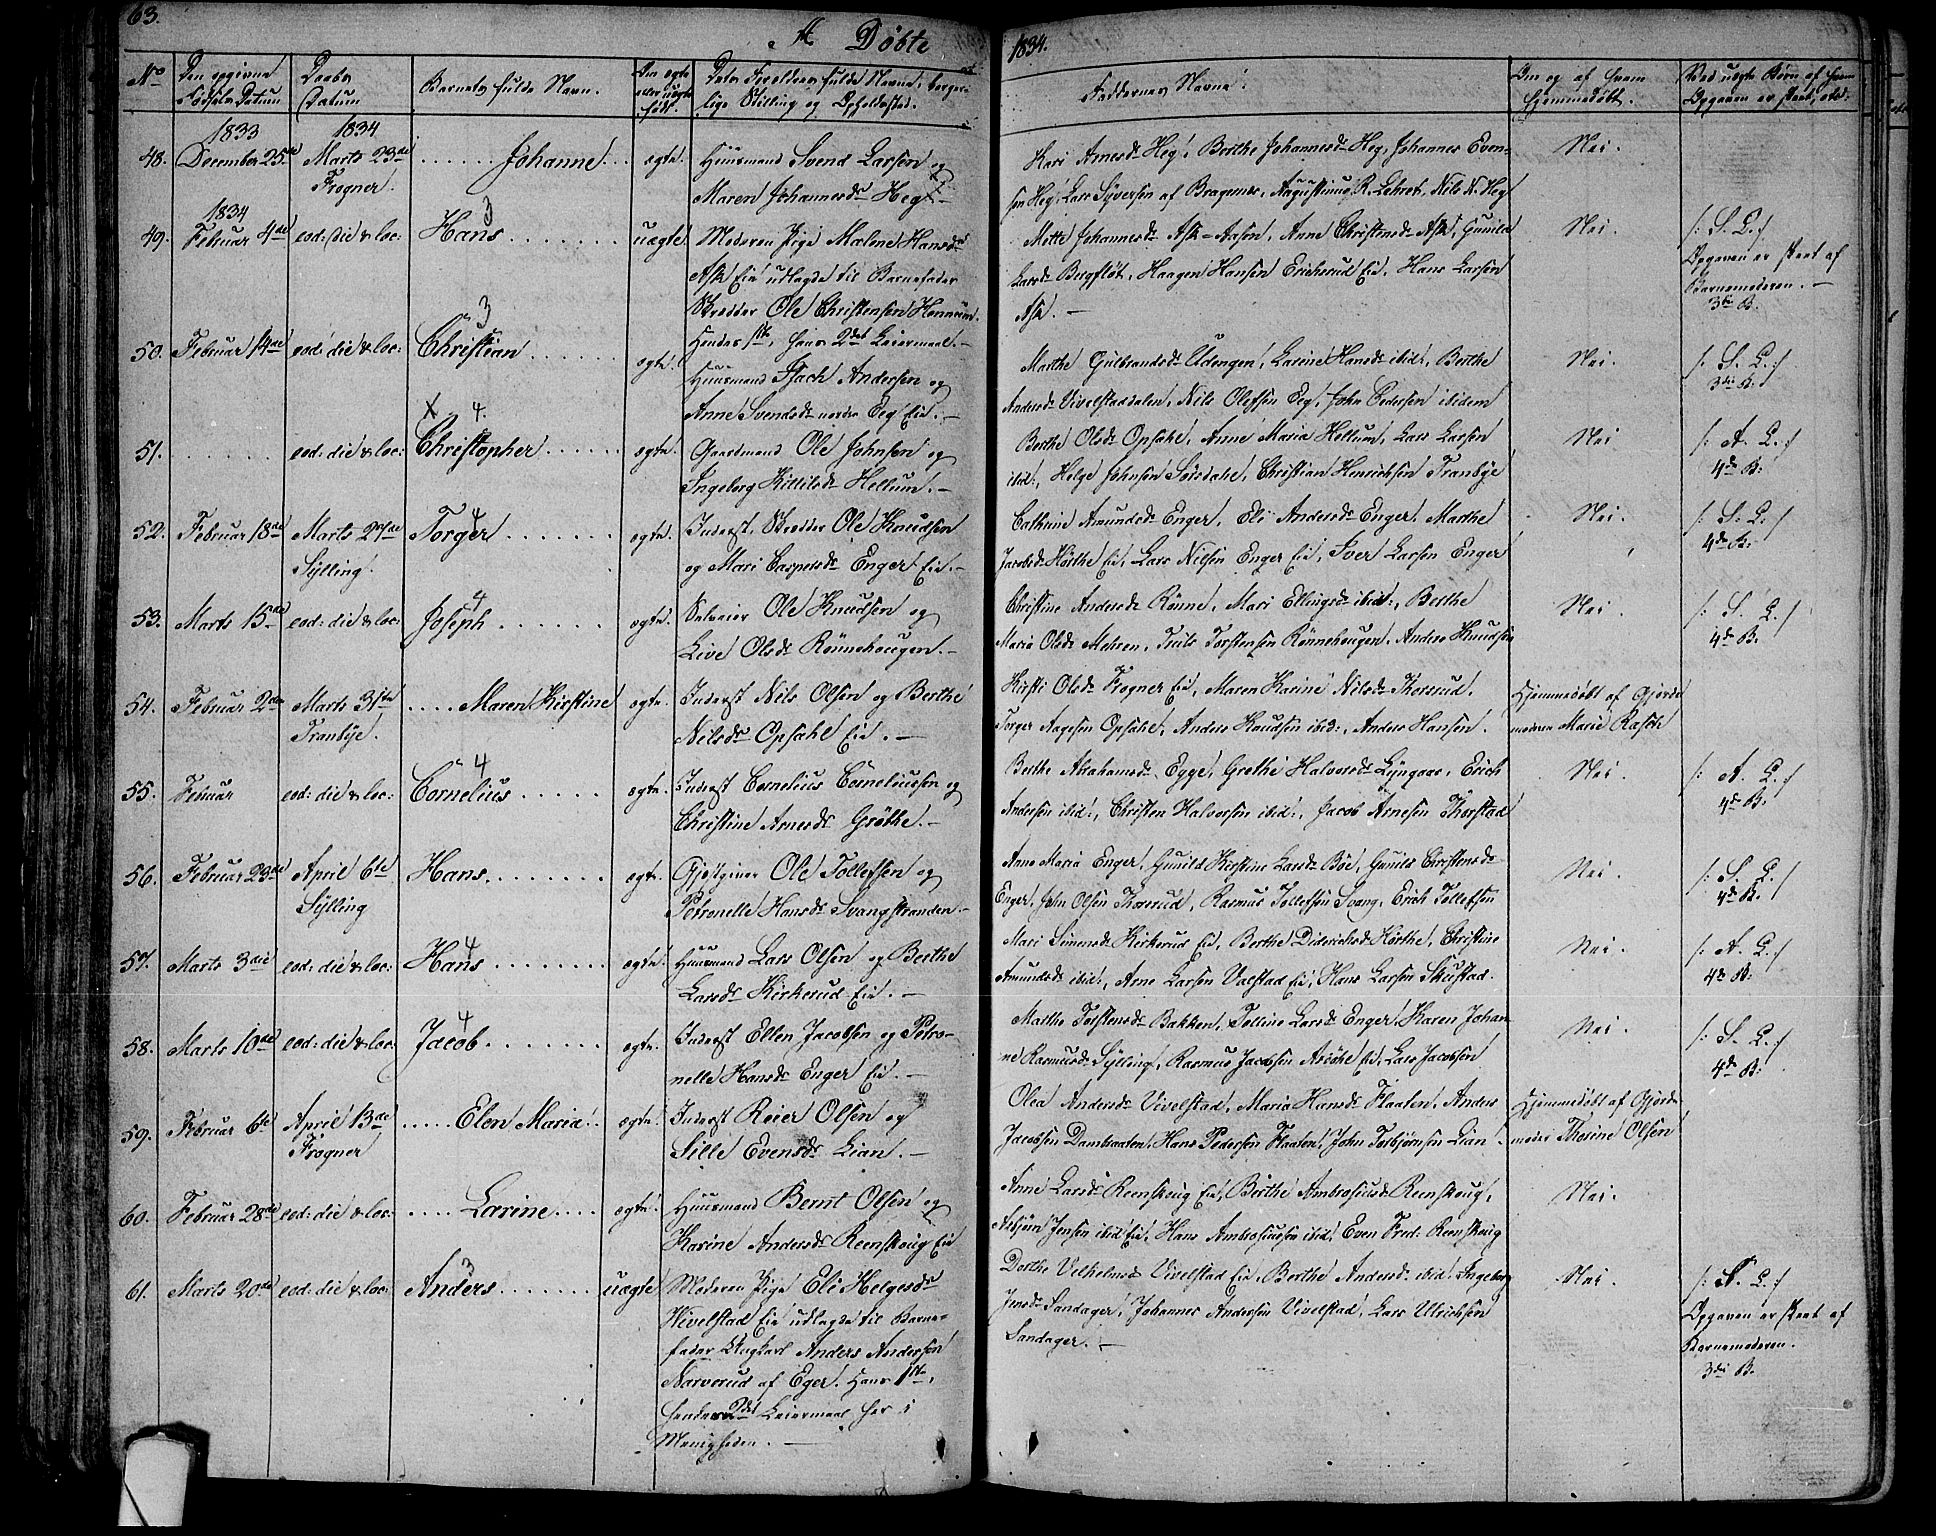 63.
A Döbte
1834.
No
Den opgivne Födsels Datum
Daabs Datum
Barnets fulde Navn.
Om ægte eller uægte født.
Dets Forældres fulde Navne, borgerlige Stilling og Opholdssted.
Faddernes Navne.
Om og af hvem hjemmedöbt.
Ved uægte Børn af hvem Opgaven er skeet, etc:
1833
1834
48. December 25de Marts 23de ...... Johanne ... ægte. Huusmand Svend Larsen og
Frogner. Maren Johannesdr Heg. –
Kari Arnesdr Heg, Berthe Johannesdr Heg, Johannes Even-
sen Heg, Lars Syversen af Bragernes, Augustinus R. Lehret, Nils N. Heg
Nei.
1834
49. Februar 4de eod: die & loc: Hans ...... uægte Moderen Pige Malene Hansdr
3
Ask Eie udlagde til Barnefader
Skrædder Ole Christensen Hennum.
Hendes 1ste, hans 2det Leiermaal. –
Mette Johannesdr Ask – Aasen, Anne Christensdr Ask, Gunild
Larsdr Bergfløt, Haagen Hansen Ericherud Eie, Hans Larsen
Ask. –
Nei.
/: S. Q. :/
Opgaven er skeet af
Barnemoderen. –
3die B.
50. Februar 14de eod: die & loc: Christian ...... ægte.
3
Huusmand Isach Andersen og
Anne Svendsdr nordre Eeg Eie. –
Marthe Gulbrandsdr Udengen, Larine Hansdr ibid:, Berthe
Andersdr Vivelstaddalen, Nils Olefsen Eeg, John Pedersen ibidem
Nei.
/: S. Q. :/
3die B.
X 4.
51. ...... eod: die & loc: Christopher ...... ægte. Gaardmand Ole Johnsen og
Ingeborg Kittilsdr Hellum. –
Berthe Olsdr Opsahl, Anne Maria Hellum, Lars Larsen
ibid:, Helge Johnsen Sørsdahl, Christian Henrichsen Tranbye
Nei
/: A. Q. :/
4de B:
52. Februar 18de Marts 27de Torger ...... ægte. Inderst Skrædder Ole Knudsen
4
Sylling. og Mari Caspersdr Enger Eie. –
Cathrine Amundsdr Enger, Eli Andersdr Enger, Marthe
Jacobsdr Hörthe Eie, Lars Nilsen Enger Eie, Iver Larsen Enger
Nei.
/: S. Q. :/
4de B:
53. Marts 15de eod: die & loc: Joseph ...... ægte. Selveier Ole Knudsen og
4
Live Olsdr Rönnehougen. –
Christine Andersdr Rönne, Mari Ellingsdr ibid:, Berthe
Maria Olsdr Mehren, Truls Torstensen Rönnehougen, Anders Knudsen
Nei.
/: S. Q. :/
4de B.
54. Februar 2den Marts 31te .... Maren Kirstine ægte. Inderst Nils Olsen og Berthe
Tranbye. Nilsdr Opsahl Eie. –
Kirsti Olsdr Frogner Eie, Maren Karine Nilsdr Thorrud,
Torger Aagesen Opsahl, Anders Knudsen ibid:, Anders Hansen.
Hjemmedöbt af Gjorde-
moderen Marie Rasch
55. Februar eod: die & loc: Cornelius ...... ægte. Inderst Cornelius Corneliussen og
4
Christine Arnesdr Gröthe. –
Berthe Abrahamsdr Egge, Grethe Halvorsdr Lyngaas, Erich
Andersen ibid:, Christen Halvorsen ibid:, Jacob Arnesen Thorstad
Nei.
/: A. Q. :/
4de B.
56. Februar 23de April 6te Hans ...... ægte. Gjestgiver Ole Tollefsen og
Sylling Petronelle Hansdr Svangstranden. –
Anne Maria Enger, Gunild Kirstine Larsdr Böe, Gunild Christensdr
Enger, John Olsen Thorerud, Rasmus Tollefsen Svang, Erich Tollefsen
Nei.
/: S. Q. :/
4de B.
57. Marts 3die eod: die & loc: Hans ...... ægte. Huusmand Lars Olsen og Berthe
4
Larsdr Kirkerud Eie. –
Mari Simensdr Kirkerud Eie, Berthe Diderichsdr Hörthe, Christine
Amundsdr ibid:, Arne Larsen Valstad Eie, Hans Larsen Skustad.
Nei.
/: A. Q. :/
4de B.
58. Marts 10de eod: die & loc: Jacob ...... ægte. Inderst Ellen Jacobsen og Petro-
4
nelle Hansdr Enger Eie. –
Marthe Torstensdr Bakken, Tolline Larsdr Enger, Karen Johan-
ne Rasmusdr Sylling, Rasmus Jacobsen Eie, Lars Jacobsen
Nei.
/: S. Q. :/
4de B.
59. Februar 6te April 13de ..... Elen Maria. ægte. Inderst Reier Olsen og
Frogner Sille Evensdr Lian. –
Olea Andersdr Vivelstad, Maria Hansdr Flaaten, Anders
Jacobsen Dambraaten, Hans Pedersen Flaaten, John Torbjörnsen Lian.
Hjemmedöbt af Gjorde-
moder Thorine Olsen
60. Februar 28de eod: die & loc: ..... Larine .... ægte. Huusmand Bernt Olsen og
Karine Andersdr Reenskoug Eie
Anne Larsdr Reenskoug Eie, Berthe Ambrosiusdr Reenskoug,
Asbjörn Jensen ibid Eie, Hans Ambrosiussen ibid, Even Fred: Reenskoug
Nei.
61. Marts 20de eod: die & loc: Anders ...... uægte Moderen Pige Eli Helgesdr
3
Vivelstad Eie udlagde til Barne-
fader Ungkarl Anders Andersen
Narverud af Eger. Hans 1ste,
hendes 2det Leiermaal her i
Menigheden. –
Dorthe Velhelmsdr Vivelstad Eie, Berthe Andersdr ibid:, Ingeborg
Jensdr Sandager, Johannes Andersen Vivelstad, Lars Ulrichsen
Sandager. –
Nei.
/: A. Q. :/
Opgaven er skeet af
Barnemoderen.
3die B.